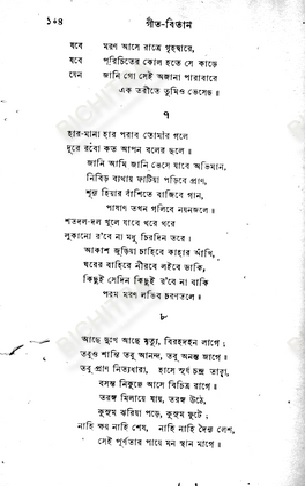 ১০৪ গীত-বিতান
যবে মরণ আসে রাত্রে গৃহদ্বারে,
যবে পরিচিতের কোল হতে সে কাড়ে
যেন জানি গো সেই অজানা পারাবারে
এক তরীতে তুমিও ভেসেছ ॥
৭
হার-মানা হার পরাব তোমার গলে
দূরে রবো কত আপন বলের ছলে ॥
জানি আমি জানি ভেসে যাবে অভিমান,
নিবিড় ব্যথায় ফাটিয়া পড়িবে প্রাণ,
শূন্য হিয়ার বাঁশিতে বাজিবে গান,
পাষাণ তখন গলিবে নয়নজলে ॥
শতদল-দল খুলে যাবে থরে থরে
লুকানো র'বে না মধু চিরদিন তরে ॥
আকাশ জুড়িয়া চাহিবে কাহার আঁখি,
ঘরের বাহিরে নীরবে লইবে ডাকি,
কিছুই সেদিন কিছুই র'বে না বাকি
পরম মরণ লভিব চরণতলে ॥
৮
আছে দুঃখ আছে মৃত্যু, বিরহদহন লাগে;
তবুও শান্তি তবু আনন্দ, তবু অনন্ত জাগে ॥
তবু প্রাণ নিত্যধারা, হাসে সূর্য চন্দ্র তারা,
বসন্ত নিকুঞ্জে আসে বিচিত্র রাগে ॥
তরঙ্গ মিলায়ে যায়, তরঙ্গ উঠে,
কুসুম ঝরিয়া পড়ে, কুসুম ফুটে;
নাহি ক্ষয় নাহি শেষ, নাহি নাহি দৈন্য লেশ,
সেই পূর্ণতার পায়ে মন স্থান মাগে ॥